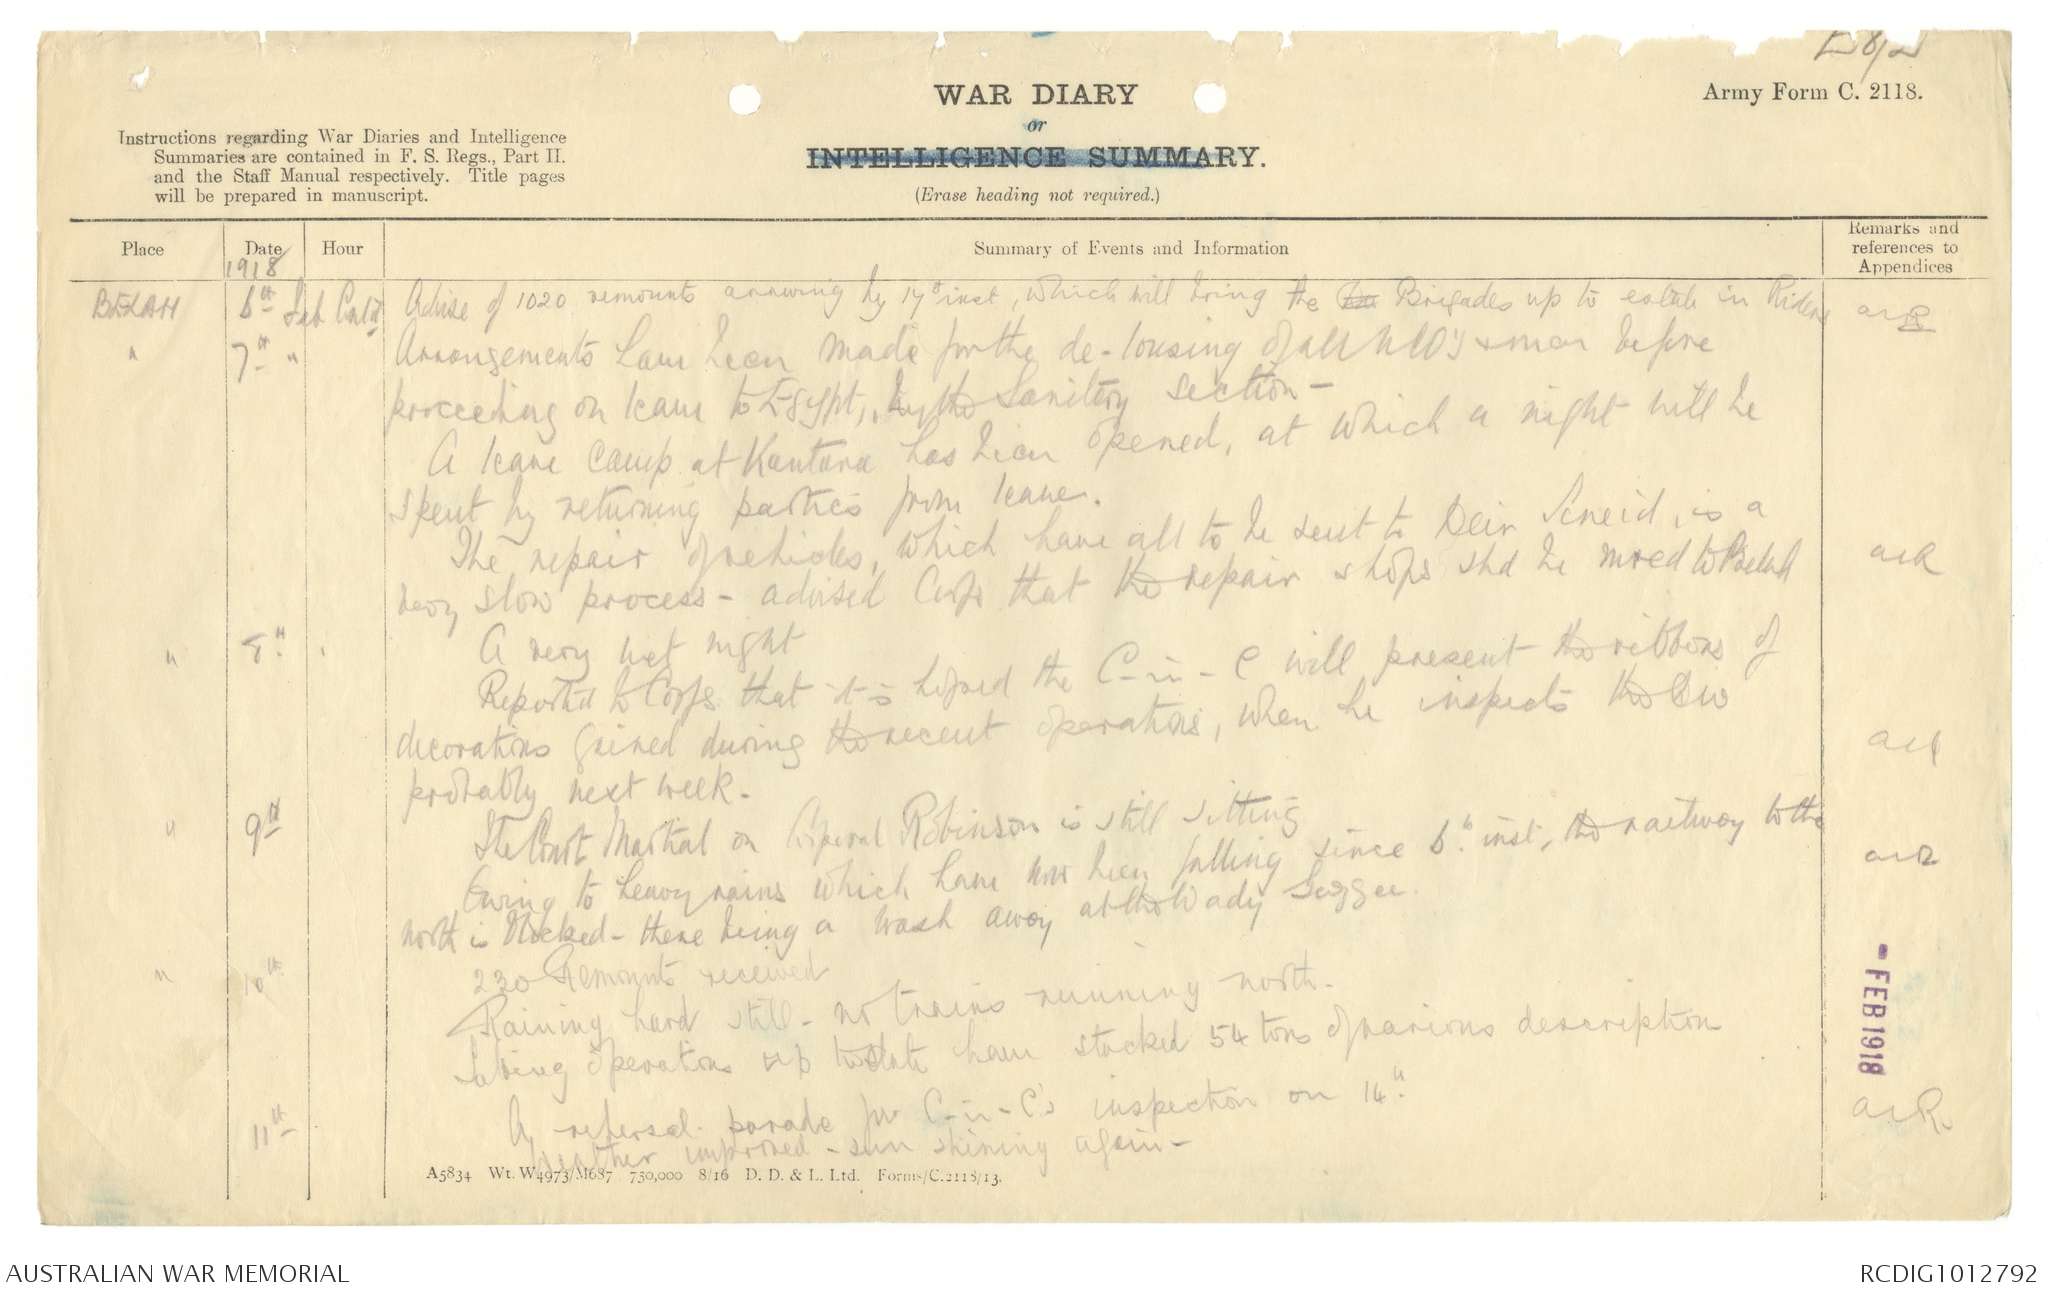 WAR DIARY
or
INTELLIGENCE SUMMARY.
(Erase heading not required.)
Army Form C. 2118.
Instructions regarding War Diaries and Intelligence
Summaries are contained in F. S. Regs., Part II.
and the Staff Manual respectively. Title pages
will be prepared in manuscript.
Place Date Hour Summary of Events and Information Remarks and references to Appendices
1918
BELAH 6th Feb Contd Advise of 1020 remounts arriving by 17th inst, which will bring the Brigades up to estab in Riders
" 7th " Arrangements have been made for the de-lousing of all NCO's & men before
proceeding on leave to Egypt, by the Sanitary section -
A leave camp at Kantara has been opened, at which a night will be
spent by returning parties from leave.
The repair of vehicles, which have all to be sent to Deir Seneid, is a
very slow process - advised Corps that the repair shops shd be moved to Belah
" 8th A very wet night
Reported to Corps that it is hoped the C-in-C will present the ribbons of
decorations gained during the recent operations, when he inspects the Div
probably next week.
" 9th The Court Martial on Corporal Robinson is still sitting
Owing to heavy rains which have now been falling since 6th inst, the railway to the
north is blocked - there being a wash away at the Wady
" 10th 230 Remounts received
Raining hard still - no trains running north.
Salving operations up to date have stacked 54 tons of various description
11th A rehersal parade for C-in-C's inspection on 14th.
Weather improved - sun shining again -
- FEB 1918
A5834 Wt. W4973/M687 750,000 8/16 D. D. & L. Ltd. Forms/C.2118/13.
AUSTRALIAN WAR MEMORIAL
RCDIG1012792